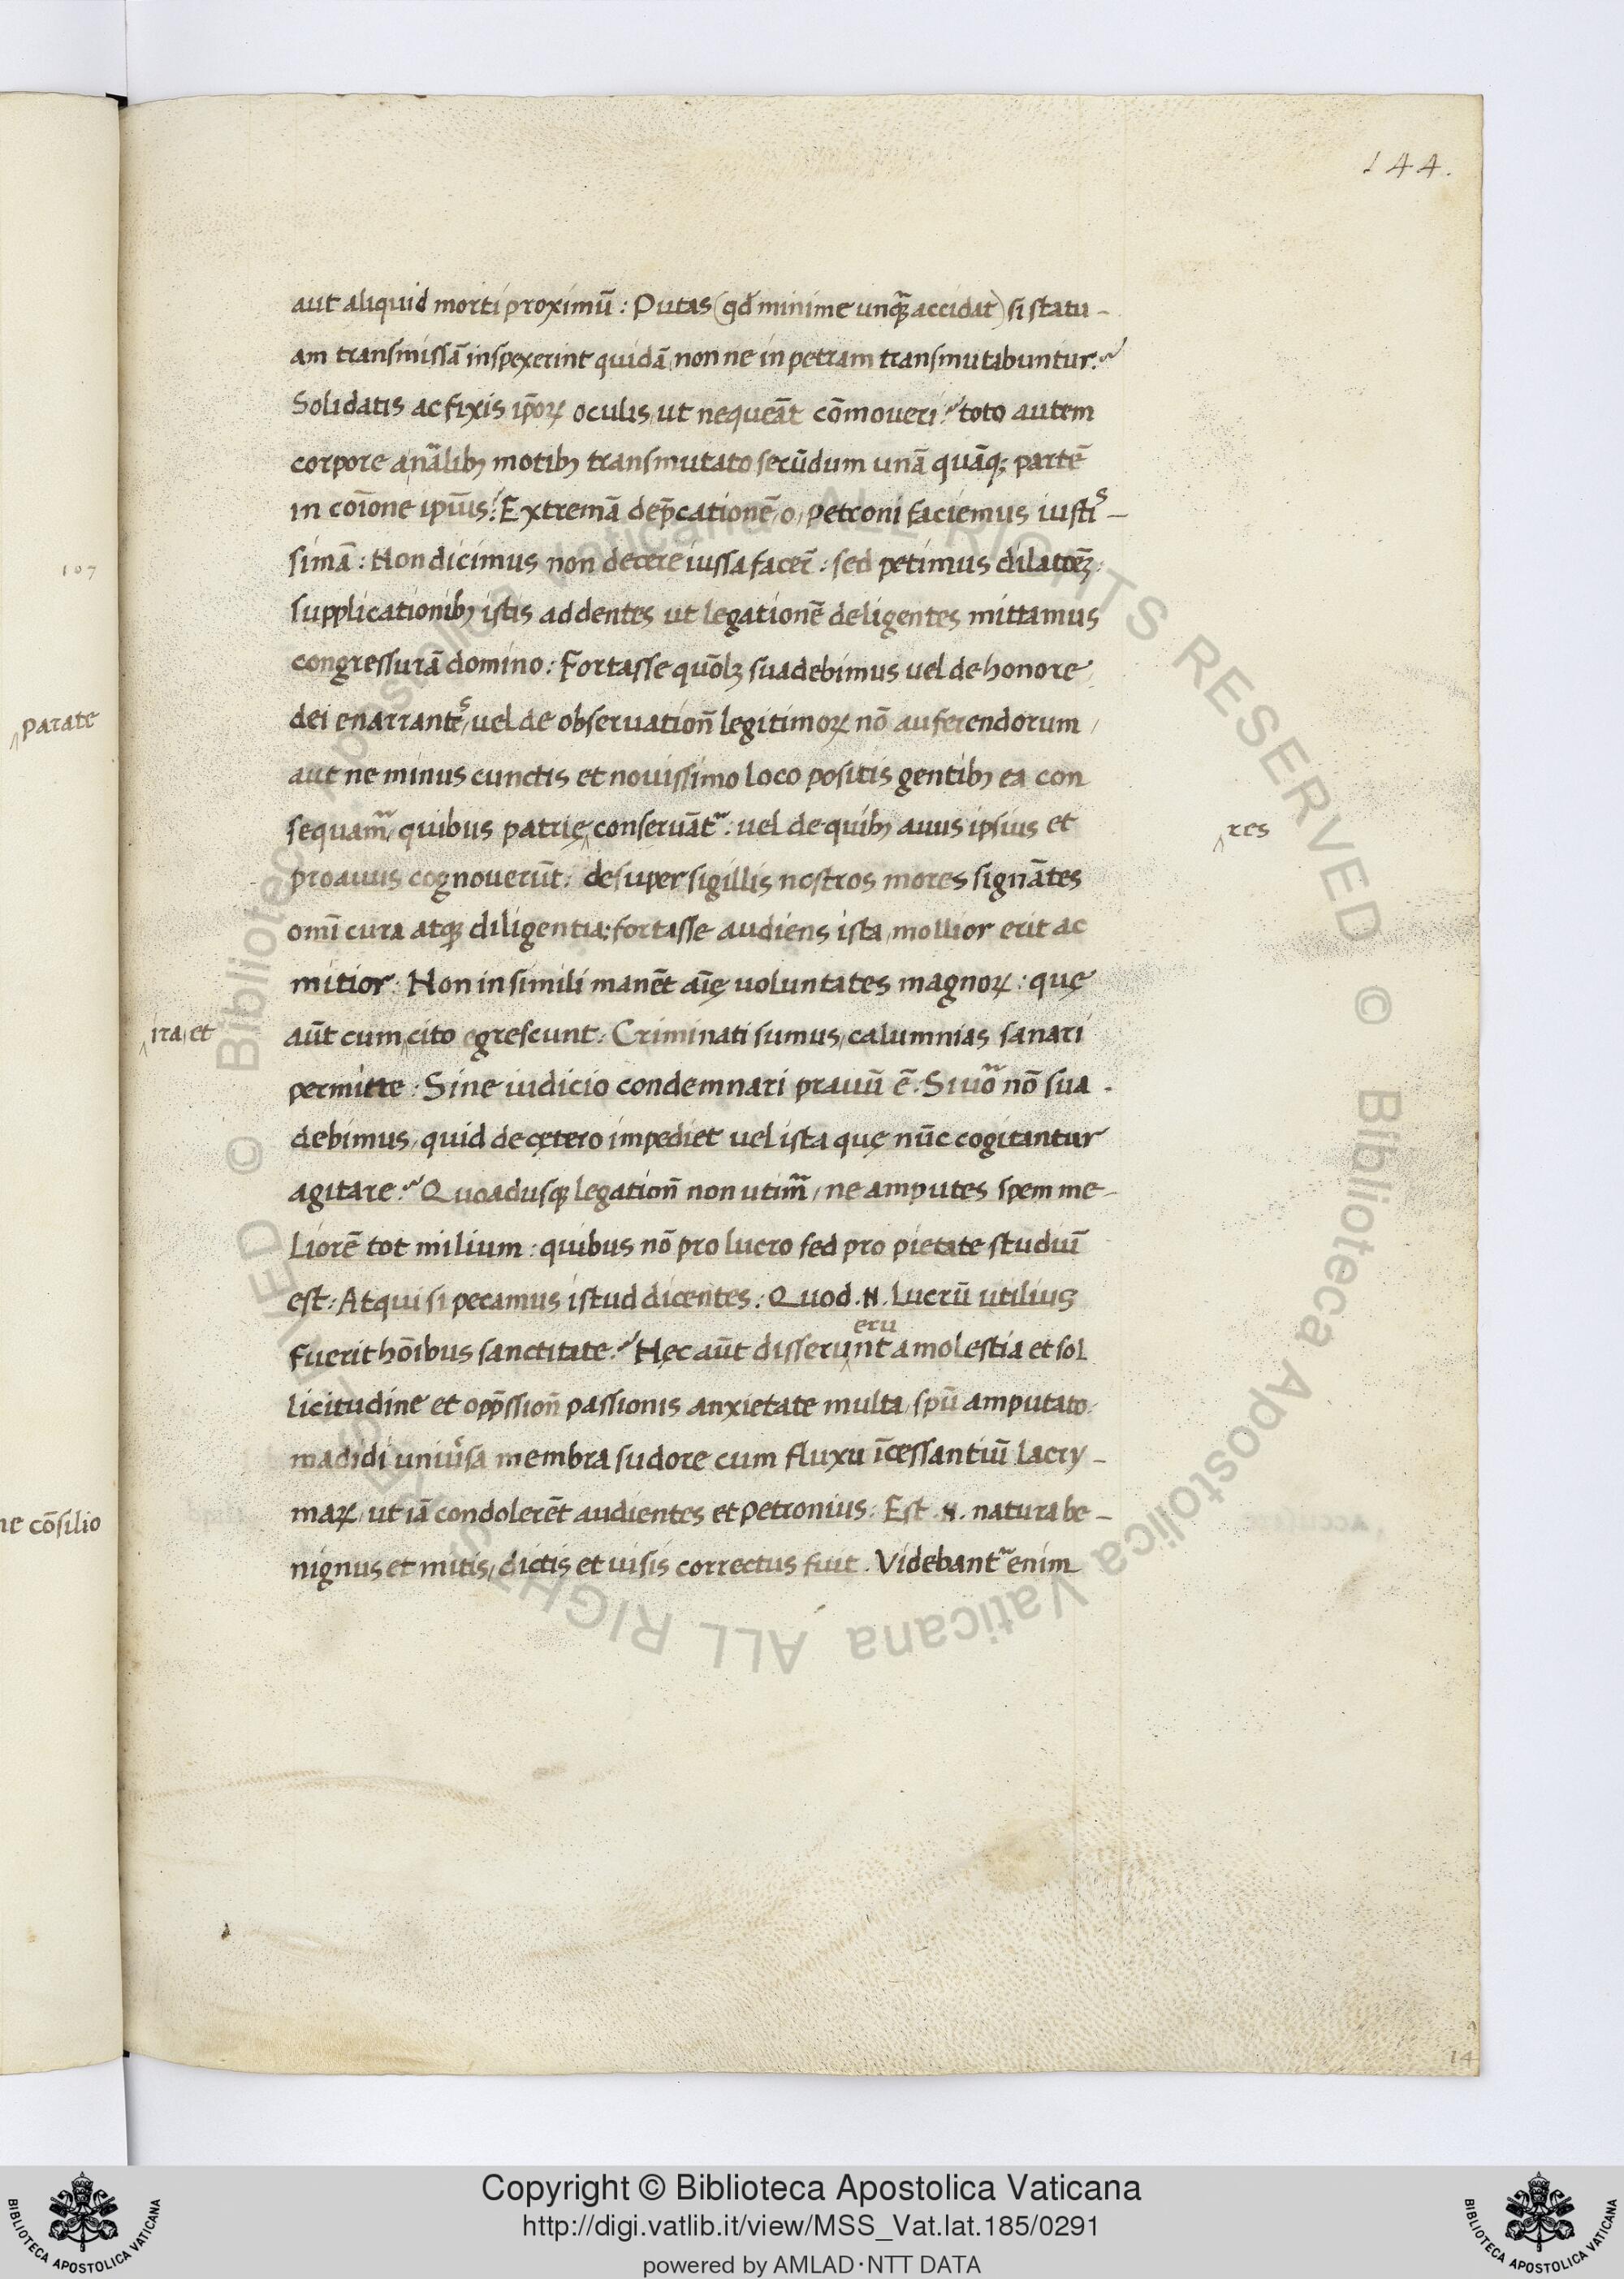 144.
aut aliquid morti proximũ : Putas (qđ minime unq̃ accidat) si statu-
am transmissã inspexerint quidã, non ne in petram transmutabuntur?
Solidatis ac fixis ip̃oꝝ oculis, ut nequeãt cõmoueri? toto autem
corpore, añalibꝫ motibꝫ transmutato secũdum unã quãq; partẽ
in coĩone ipĩus? Extremã dep̃cationẽ, o, petroni faciemus iustis-
simã : Non dicimus non decere iussa facer̃ : sed petimus dilatõeꝫ :
supplicationibꝫ istis addentes ut legationẽ deligentes mittamus
congressurã domino : Fortasse quõlꝫ suadebimus uel de honore
dei enarrantes, uel de obseruation̄ legitimoꝝ nõ auferendorum,
parate
aut ne minus cunctis et nouissimo loco positis gentibꝫ ea con
sequam̃, quibus patrię conseruãt̃ : uel de quibꝫ auus ipsius et
res
proauus cognouerũt : desuper sigillis nostros mores signãtes
omĩ cura atqꝫ diligentia; fortasse audiens ista, mollior erit ac
mitior : Non in simili manẽt aĩę uoluntates magnoꝝ : quę
ira, et
aũt cum cito egrescunt : Criminati sumus, calumnias sanari
permitte : Sine iudicio condemnari prauũ ẽ. Si uõ nõ sua-
debimus, quid de cętero impediet uel ista quę nũc cogitantur
agitare? Quoadusqꝫ legation̄ non utim̃, ne amputes spem me-
liorẽ tot milium : quibus nõ pro lucro sed pro pietate studiũ
est : Atqui si pecamus istud dicentes : Quod .N. lucrũ utilius
fuerit hõibus sanctitate? Hęc aũt disserunt a molestia et sol
eru
licitudine et opp̃ssion̄ passionis anxietate multa, spũ amputato :
madidi uniũsa membra sudore cum fluxu ĩcessantiũ lacry-
maꝝ, ut iã condolerẽt audientes et petronius : Est .N. natura be-
ne cõsilio
nignus et mitis, dictis et uisis correctus fuit. Videbant̃ enim
107
14
© Biblioteca Apostolica Vaticana ALL RIGHTS RESERVED © Biblioteca Apostolica Vaticana ALL RIGHTS RESERVED
Copyright © Biblioteca Apostolica Vaticana
http://digi.vatlib.it/view/MSS_Vat.lat.185/0291
powered by AMLAD·NTT DATA
BIBLIOTECA APOSTOLICA VATICANA
BIBLIOTECA APOSTOLICA VATICANA